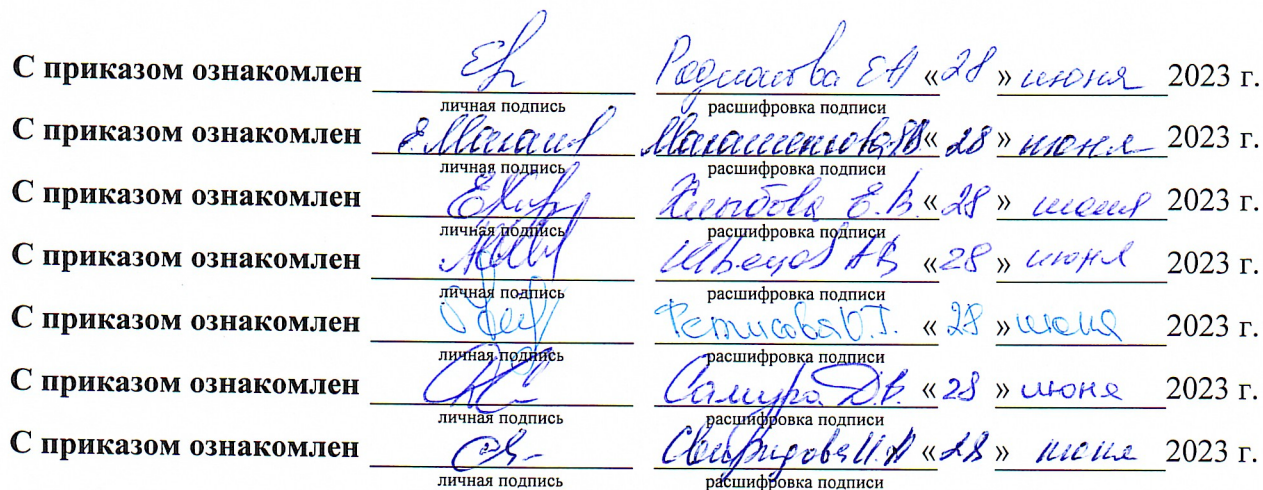 С приказом ознакомлен «28» июня 2023 г.
личная подпись расшифровка подписи
С приказом ознакомлен «28» июня 2023 г.
личная подпись расшифровка подписи
С приказом ознакомлен Е.В. «28» июня 2023 г.
личная подпись расшифровка подписи
С приказом ознакомлен Швецов АВ «28» июня 2023 г.
личная подпись расшифровка подписи
С приказом ознакомлен Фетисова О.Г. «28» июня 2023 г.
личная подпись расшифровка подписи
С приказом ознакомлен Самура Д.В. «28» июня 2023 г.
личная подпись расшифровка подписи
С приказом ознакомлен «28» июня 2023 г.
личная подпись расшифровка подписи